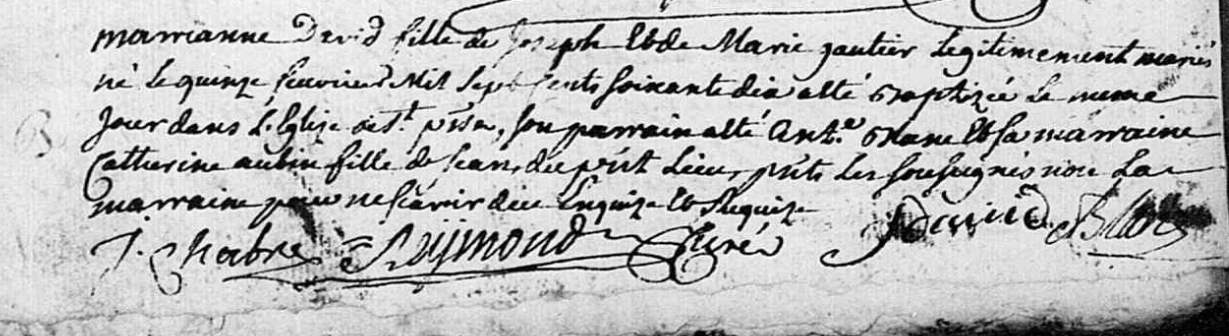 marrianne David fille de Joseph et de Marie gautier Legitimement mariés
né Le quinze fevrier Mil sept cents soixante dix a eté baptizée Le meme
Jour dans L'Eglize de St. son parrain a eté Ant.e et sa marraine
Catherine aubin fille de Jean, du p'nt Lieu, p'nts Les soussignés non La
marraine pour ne sçavoir de ce Enquize et Requize
J. Chabre Reymond Curé David